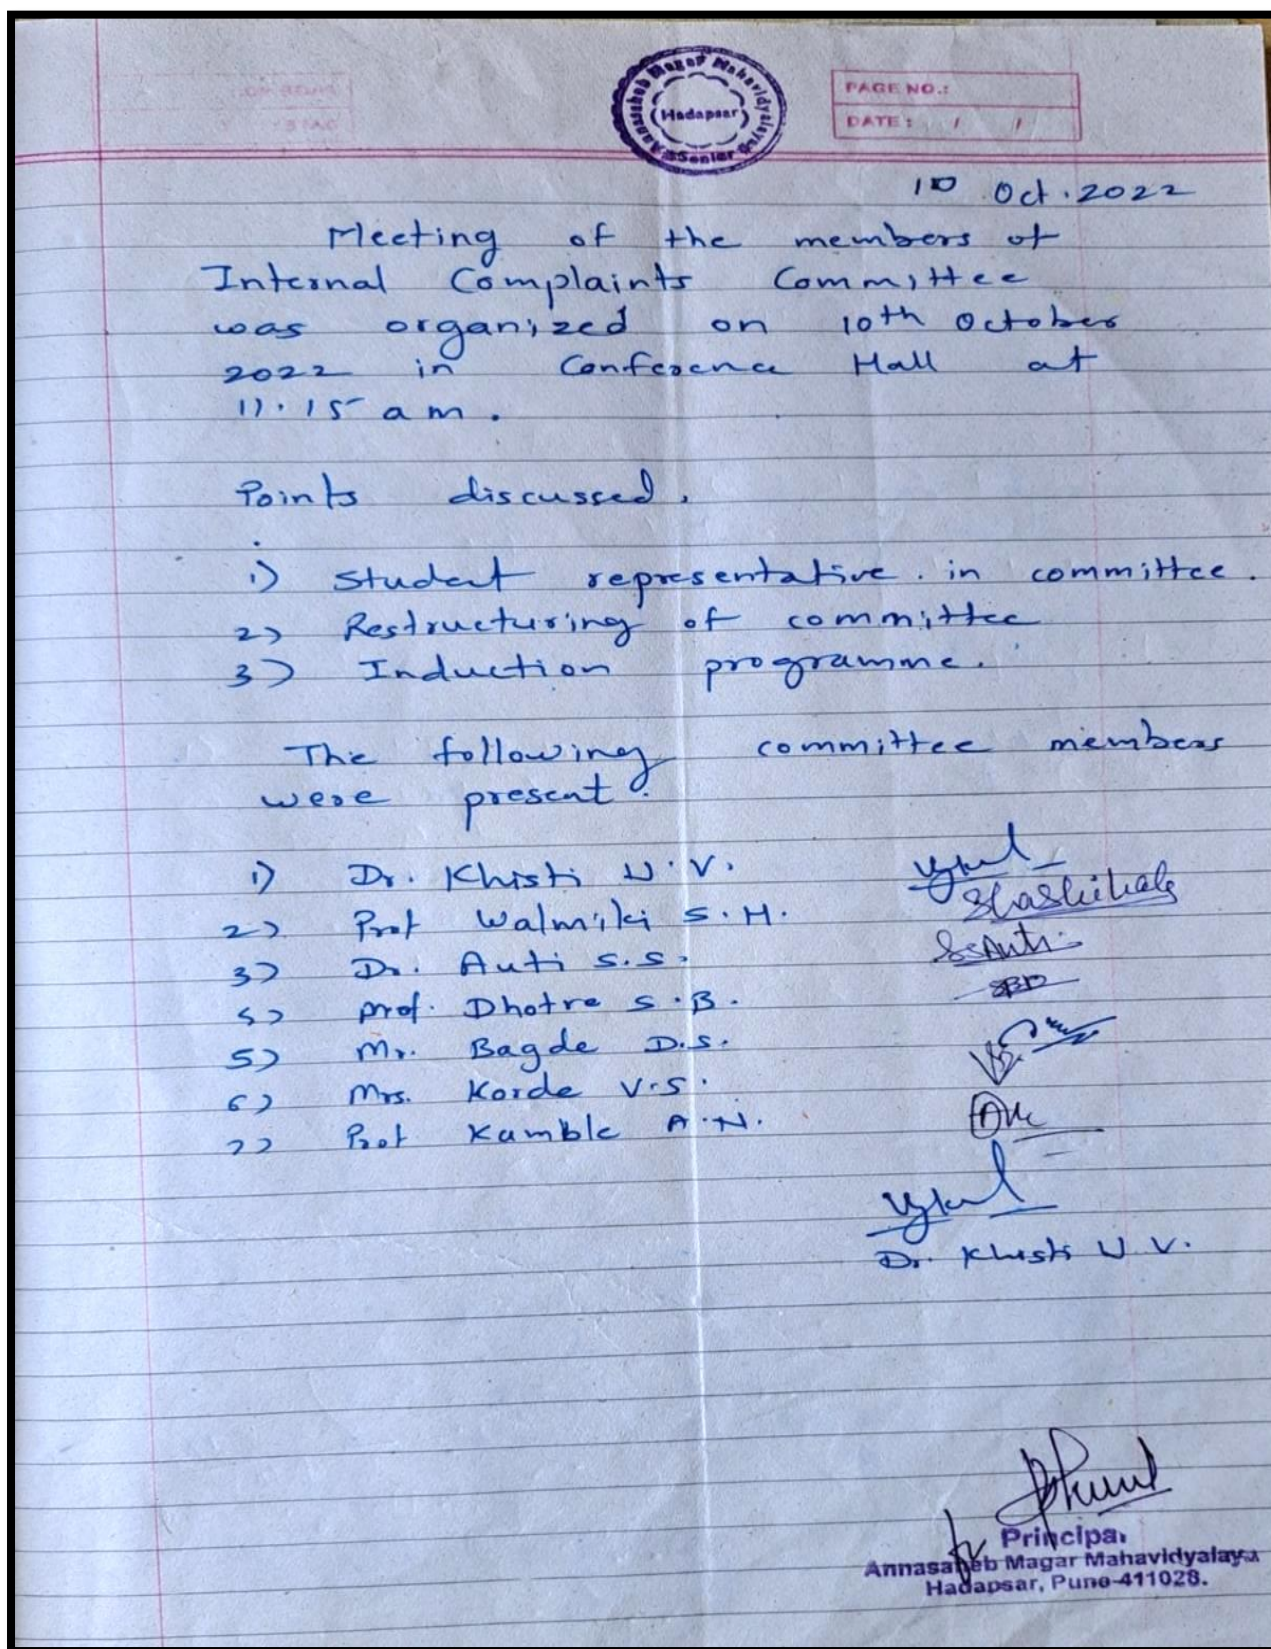 Annasaheb Magar Mahavidyalaya
Hadapsar
Senior
PAGE NO.:
DATE: / /
10 Oct. 2022
Meeting of the members of
Internal Complaints Committee
was organized on 10th October
2022 in Conference Hall at
11.15 am.
Points discussed.
1) Student representative in committee.
2) Restructuring of committee
3) Induction programme.
The following committee members
were present.
1) Dr. Khisti U.V.
2) Prof Walmiki S.H.
Shashikala
3) Dr. Auti S.S.
SSAuti
4) Prof. Dhotre S.B.
SBD
5) Mr. Bagde D.S.
6) Mrs. Korde V.S.
7) Prof Kamble A.N.
Dr. Khisti U.V.
Principal
Annasaheb Magar Mahavidyalaya
Hadapsar, Pune-411028.